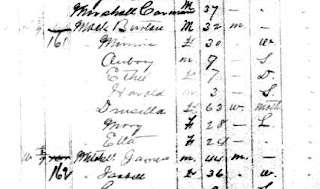 Marshall Carman M 37 -
161 Mack Burton M 32 m. -
" Minnie F 30 - w.
" Aubrey m 9 - S
" Ethel F 7 - D.
" Harold m 3 - S.
" Drusilla F 63 w. moth
" Mary F 28 - L
" Etta F 24 -
162 Mitchell James m. 44 m. -
" Isabell F 36 - w.